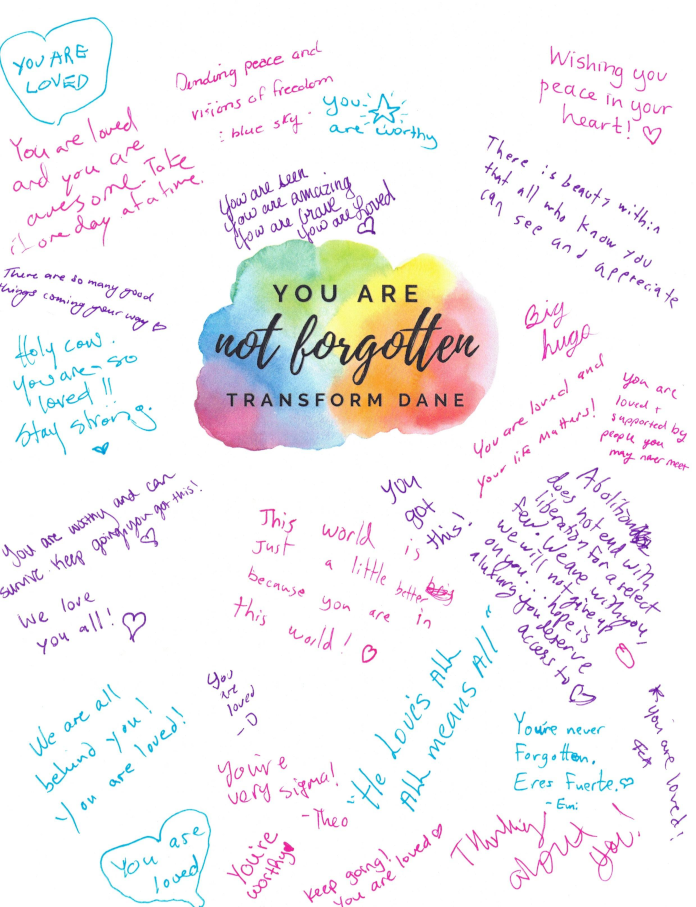 YOU ARE
LOVED
Dending peace and
visions of freedom
: blue sky.
You
are worthy
Wishing you
peace in your
heart!
You are loved
and you are
awesome. Take
it one day at a time.
You are seen
You are amazing
You are brave
You are Loved
There is beauty within
that all who know you
can see and appreciate
There are so many good
things coming your way
YOU ARE
not forgotten
TRANSFORM DANE
Big
hugs
Holy cow.
You are so
loved !!
Stay strong.
You are loved and
your life matters!
You are
loved +
supported by
people you
may never meet
You are worthy and can
survive. Keep going, you got this!
We love
you all!
This world is
Just a little better
because you are in
this world!
YOU
got
this!
Abolition
does not end with
liberation for a select
few. We are with you,
we will not give up
on you... hope is
a luxury you deserve
access to
We are all
behind you!
You are loved!
You
are
loved
-D
You're
very sigma!
-Theo
"He Loves ALL
ALL means All"
You're never
Forgotten.
Eres Fuerte.
- Emi
You are loved!
You are
loved
You're
worthy
Keep going!
You are loved
Thinking
about
you!